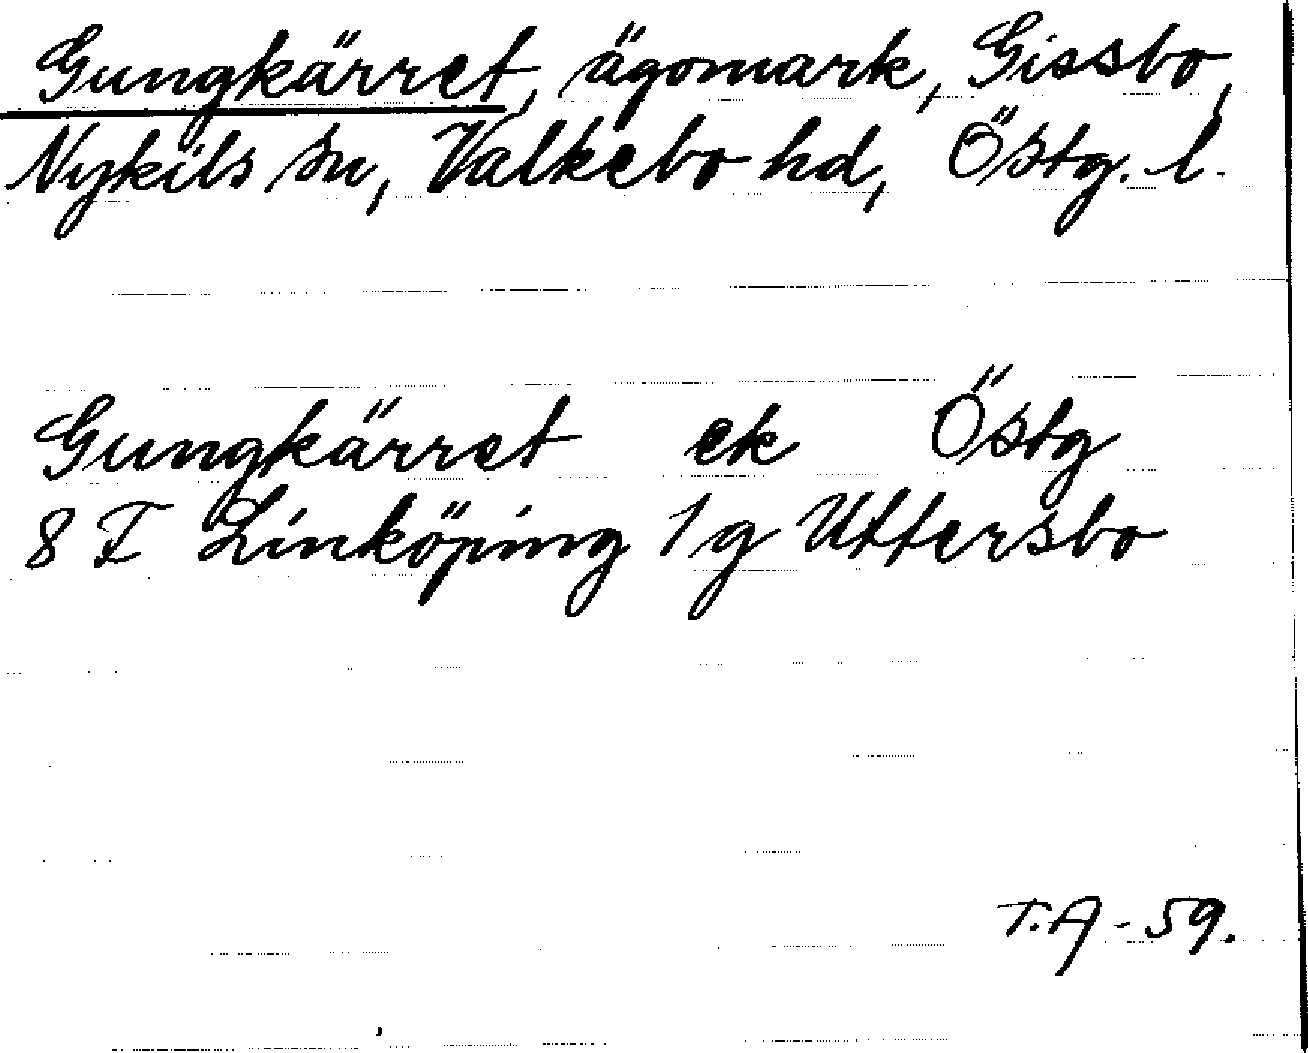 Gungkärret, ägomark, Gissbo,
Nykils sn, Valkebo hd, Östg. l.
Gungkärret ek Östg
8 F Linköping 1 g Uttersbo
T.A - 59.